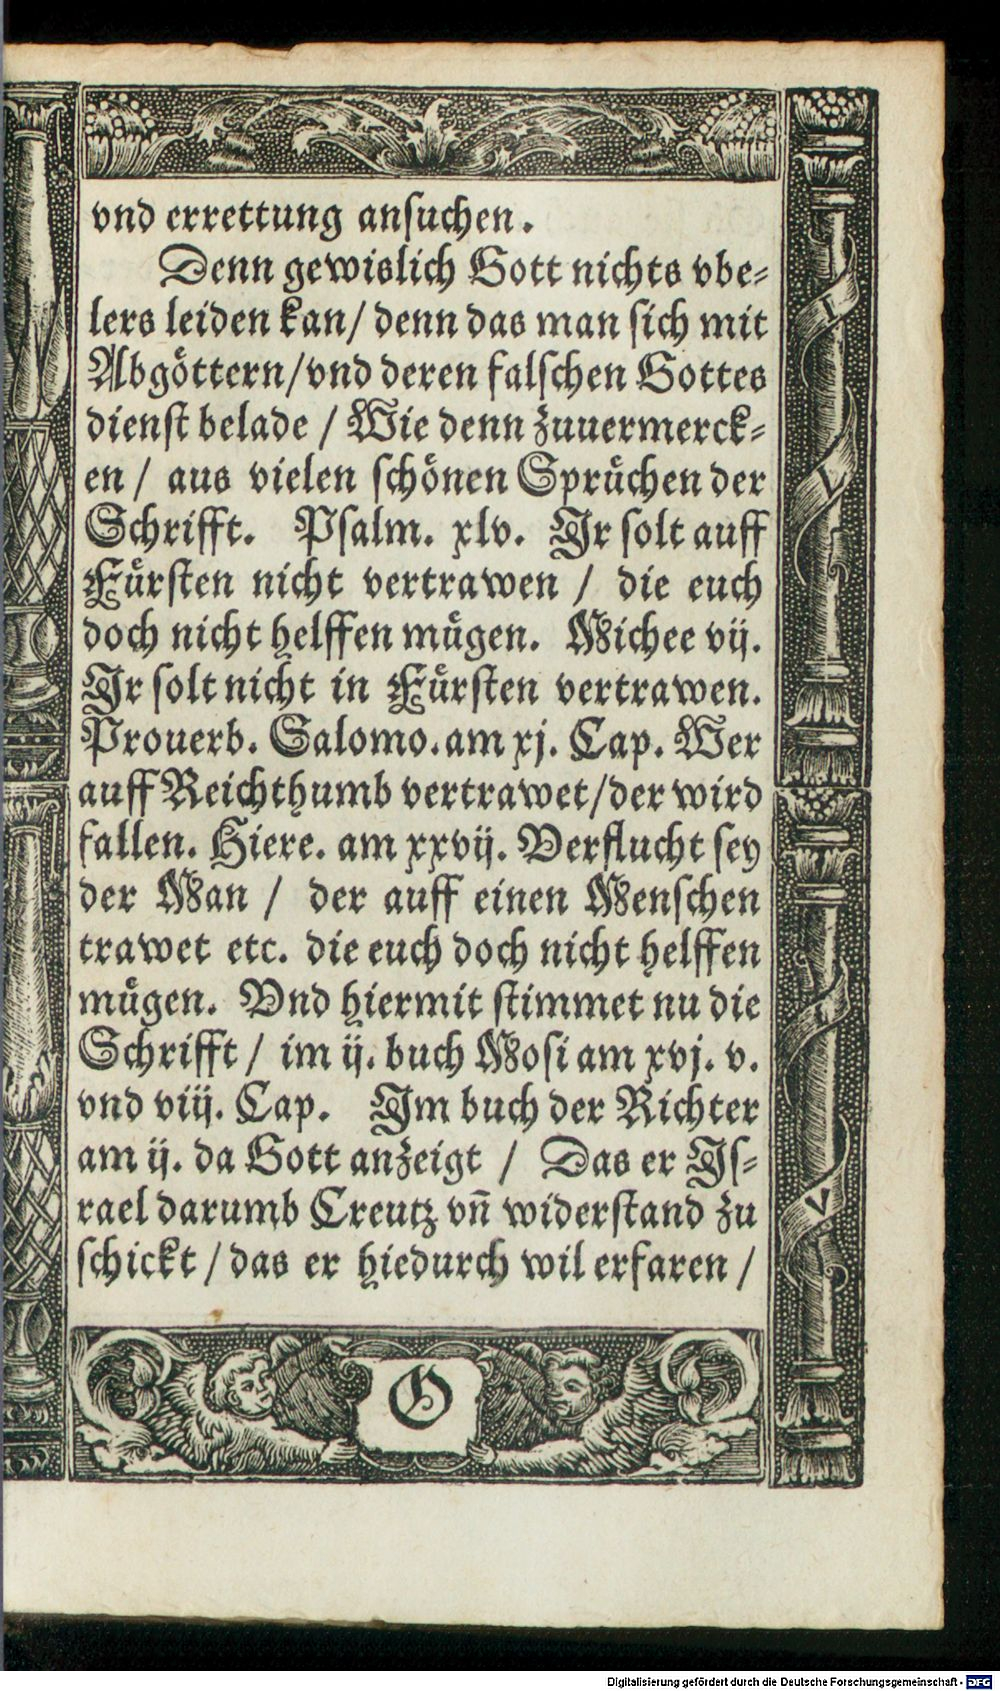 vnd errettung ansuchen.
Denn gewislich Gott nichts vbe-
lers leiden kan/ denn das man sich mit
Abgöttern/ vnd deren falschen Gottes
dienst belade / Wie denn zuuermerck-
en / aus vielen schönen Sprüchen der
Schrifft. Psalm. xlv. Ir solt auff
Fürsten nicht vertrawen / die euch
doch nicht helffen mügen. Michee vij.
Ir solt nicht in Fürsten vertrawen.
Prouerb. Salomo. am xj. Cap. Wer
auff Reichthumb vertrawet/ der wird
fallen. Hiere. am xxvij. Verflucht sey
der Man / der auff einen Menschen
trawet etc. die euch doch nicht helffen
mügen. Vnd hiermit stimmet nu die
Schrifft / im ij. buch Mosi am xvj. v.
vnd viij. Cap. Im buch der Richter
am ij. da Gott anzeigt / Das er Is-
rael darumb Creutz vn̄ widerstand zu
schickt / das er hiedurch wil erfaren /
G
Digitalisierung gefördert durch die Deutsche Forschungsgemeinschaft - DFG